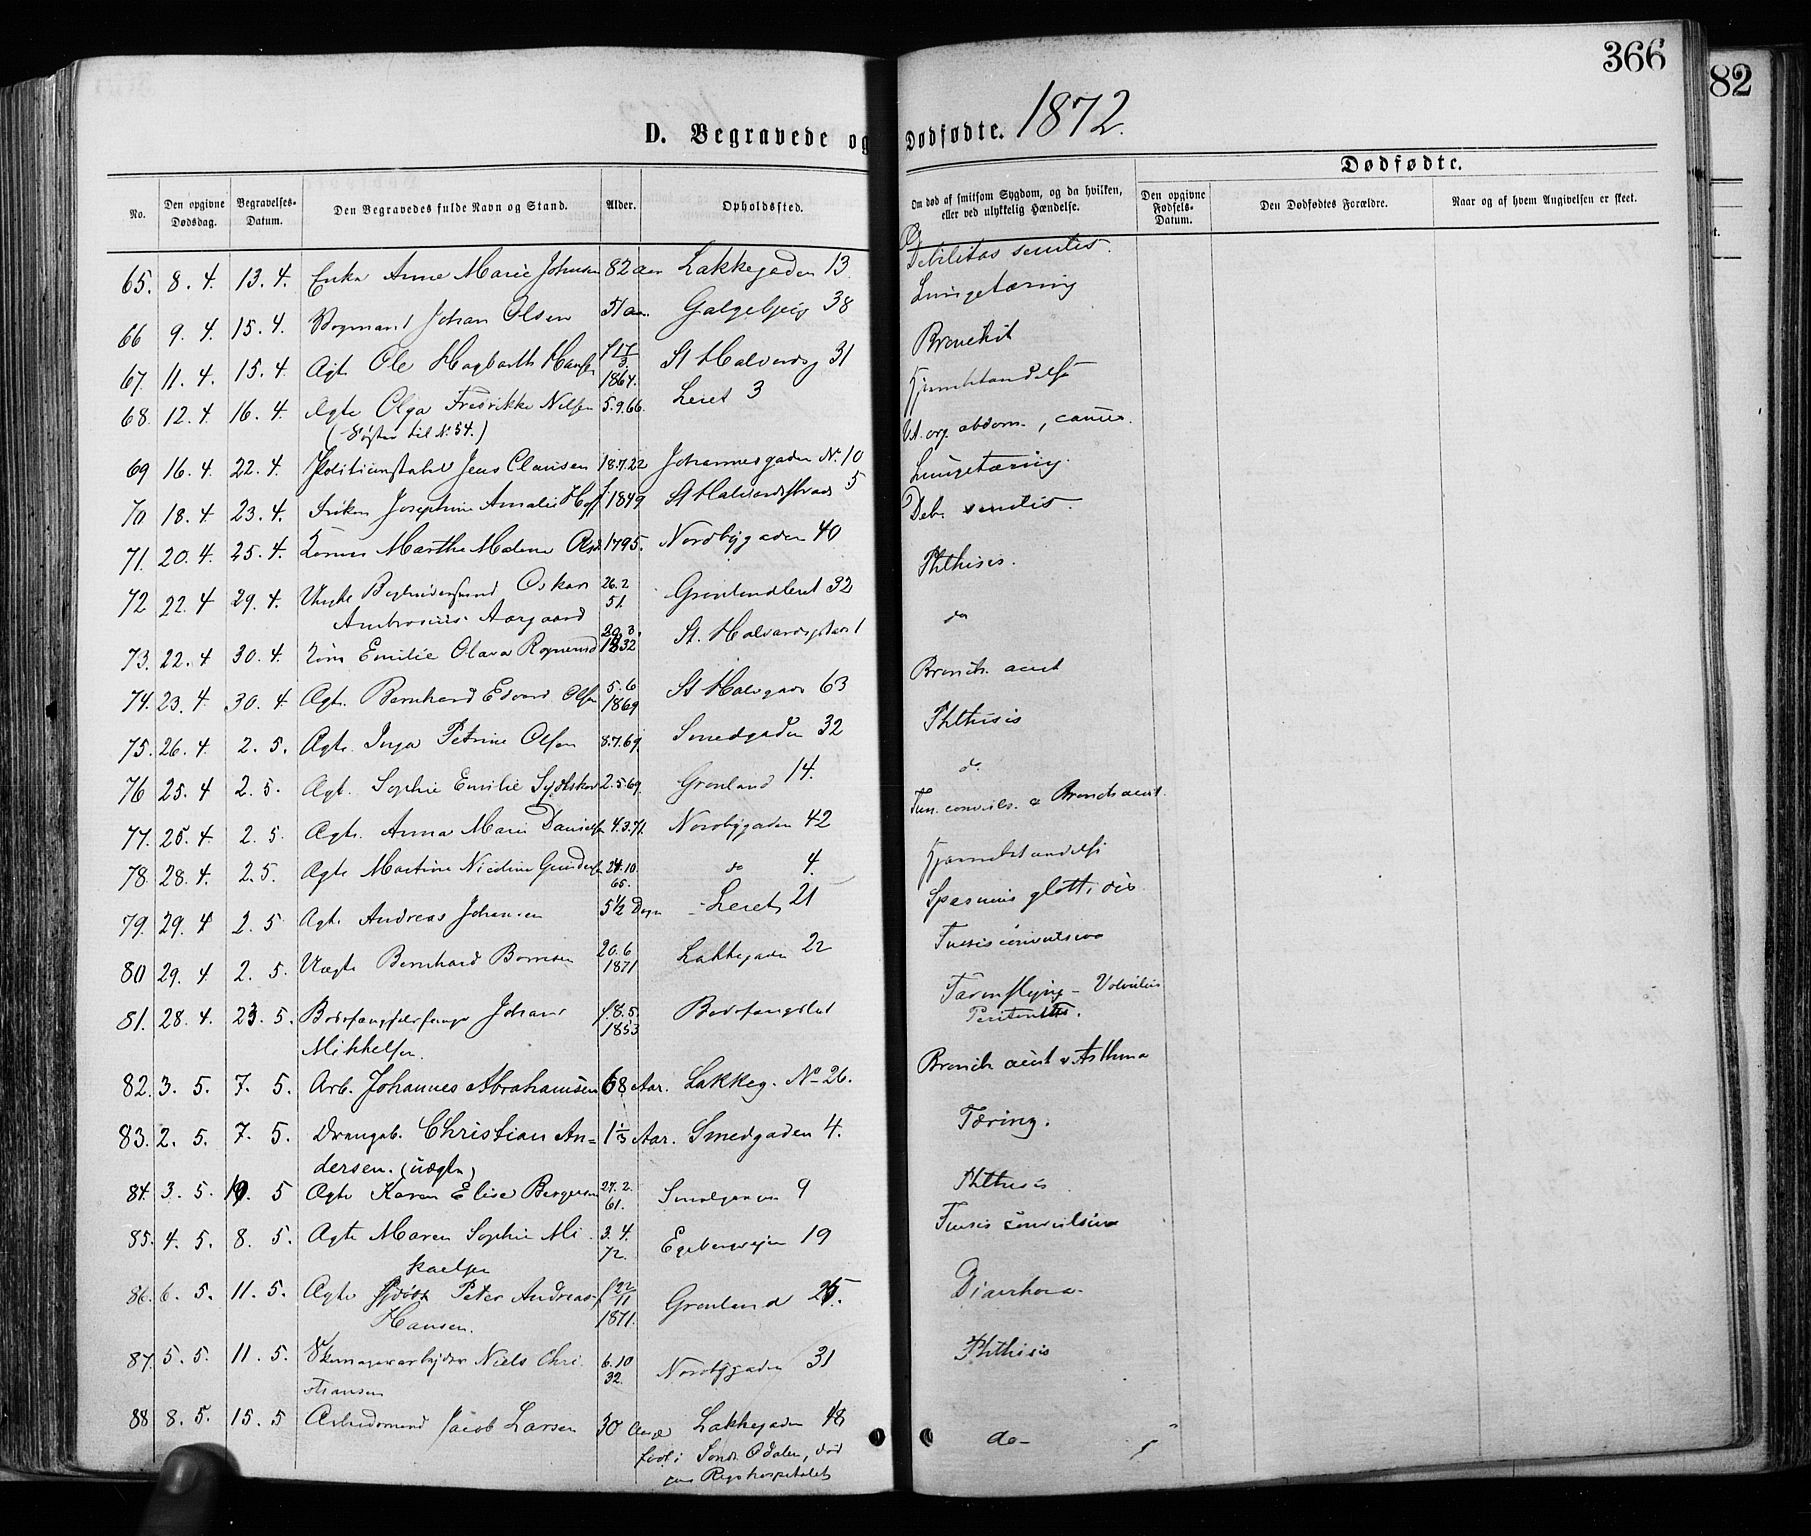 366
82
D. Begravede og Dødfødte. 1872.
Dødfødte.
No.
Den opgivne Dødsdag.
Begravelses-Datum.
Den Begravedes fulde Navn og Stand.
Alder.
Opholdssted.
Om død af smitsom Sygdom, og da hvilken, eller ved ulykkelig Hændelse.
Den opgivne Fødsels-Datum.
Den Dødfødtes Forældre.
Naar og af hvem Angivelsen er skeet.
65. 8. 4. 13. 4. Enke Anne Marie Johnsen 82 aar Lakkegaden 13. Debilitas senilis.
66 9. 4. 15. 4. Vognmand Johan Olsen 51 aar. Galgebjerg 38 Lungetæring
67. 11. 4. 15. 4. Ægte Ole Hagbarth Hansen f 17/3 1867. St Halvardsg 31 Bronchit
68. 12. 4 16. 4. Ægte Olga Fredrikke Nilsen 5.9.66. Leret 3 Hjernebetændelse
(Søster til No 54.)
69 16. 4. 22. 4. Politikonstabel Jens Clausen 18.7.22 Johannesgaden No. 10 Vit. org. abdom., cancer.
70 18. 4. 23. 4. Frøken Josephine Amalie Hoff f 1849 St Halvards 5 Lungetæring.
71. 20. 4. 25. 4. Marthe Malene 1795. Nordbygaden 40 Deb. senilis.
72 22. 4 29. 4. Oskar 26. 2 51 Grønlandsleret 32 Phthisis.
Ambrosius Aargaard
73. 22. 4 30. 4. Emilie Olava 20. 3. 1832 St. Halvards 1 do
74. 23. 4. 30. 4 Ægte. Bernhard Edvard Olsen 5. 6 1869 St Halvgade 63 Bronch. acut
75. 26. 4. 2. 5. Ægte. Inga Petrine Olsen 8.7.69. Smedgaden 32 Phthisis
76 25. 4 2. 5. Ægt. Sophie Emilie 2.5.69. Grønland 14. do.
77. 25. 4 2. 5. Ægte. Anna Marie Danielsen 4.3.71. Nordbygaden 42 Tus. convuls. & Bronch acut.
78. 28. 4. 2. 5. Ægte Martine Nicoline Gundersen 24.10. 65. do 4. Hjernebetændelse
79. 29. 4 2. 5 Ægt. Andreas Johansen 5½ Døgn Leret 21 Spasmus glottidis
80 29. 4 2. 5. Uægte Bernhard 20. 6 1871 Lakkegaden 22 Tussis convulsiva
81. 28. 4. 23. 5. Bodsfængselsfange Johan f. 8. 5. 1853 Bodsfængslet Tarmslyng - Volvulus
Mikkelsen. Peritonitis.
82. 3. 5. 7. 5. Arb. Johannes Abrahamsen 68 Aar. Lakkeg. No 26. Bronch acut & Asthma
83. 2. 5. 7. 5. Drengeb. Christian An= 1 1/3 Aar. Smedgaden 4. Tæring.
dersen. (uægte)
84. 3. 5. 10. 5 Ægte Karen Elise Bergersen 27. 2. 61. Smedgaden 9 Phthisis
85. 4. 5. 8. 5. Ægte Maren Sophie Mi- 3. 4. 72. Egebergveien 19 Tussis convulsiva
kaelsen
86. 6. 5. 11. 5. Ægte Peter Andreas f 22/11 1871. Grønland 25. Diarrhoea.
Hansen.
87. 5. 5. 11. 5. Skomagerarbejder Niels Chri- 6. 10 32. Nordbygaden 31 Phthisis
stiansen
88 8. 5. 15. 5 Arbeidsmand Jacob Larsen 30 Aar Lakkegaden 48 do-
født i Søndre Odalen, død
paa Rigshospitalet